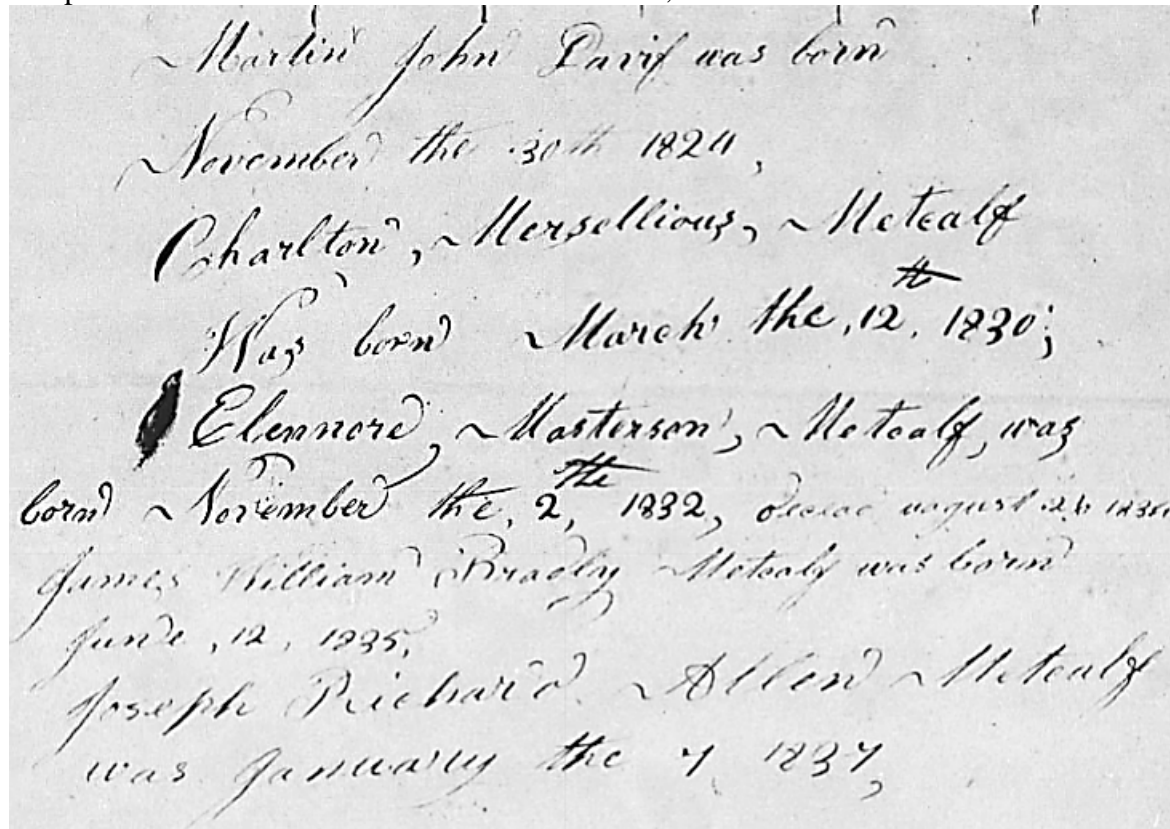 Martin John Davis was born
November the 30th 1824,
Charlton, Mersellious, Metcalf
Was born March the, 12th, 1830;
Elennore, Masterson, Metcalf, was
born November the, 2the, 1832, august
James William Bradly Metcalf was born
June, 12, 1835,
Joseph Richard Allen Metcalf
was January the 7 1837,